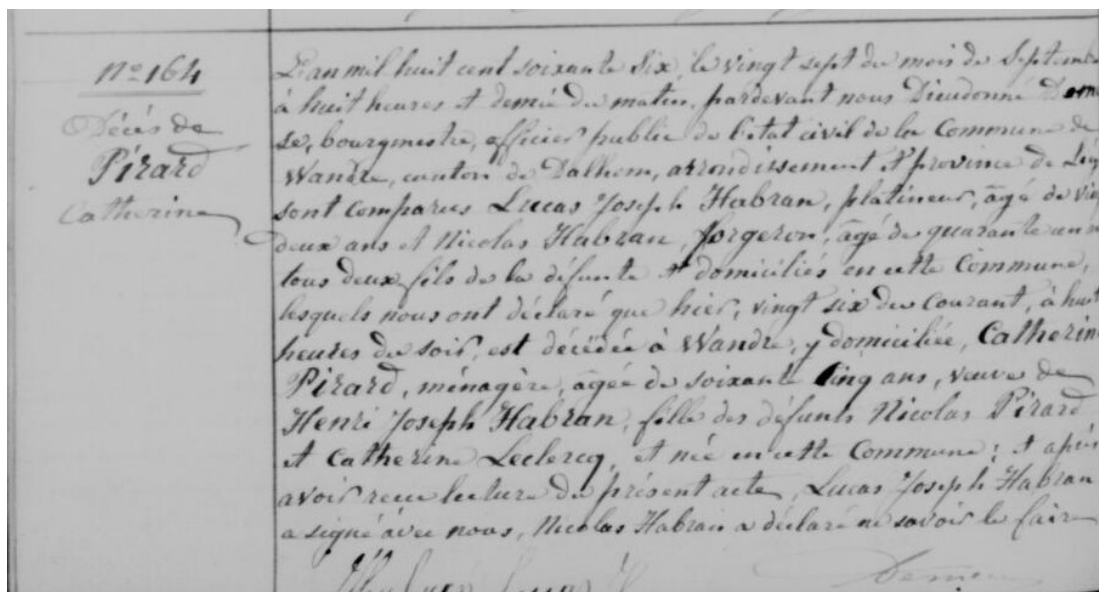 N° 164
Décès de
Pirard
Catherine
L'an mil huit cent soixante six, le vingt sept du mois de Septembre
à huit heures et demie du matin, pardevant nous Dieudonné Dem
se, bourgmestre, officier public de l'état civil de la Commune de
Wandre, canton de Dalhem, arrondissement et province de Liég
sont comparus Lucas Joseph Habran, platineur, âgé de ving
deux ans et Nicolas Habran, forgeron, âgé de quarante un
tous deux fils de la défunte et domiciliés en cette Commune,
lesquels nous ont déclaré que hier, vingt six du Courant, à huit
heures du soir, est décédée à Wandre, y domiciliée, Catherine
Pirard, ménagère, âgée de soixante cinq ans, veuve de
Henri Joseph Habran, fille des défunts Nicolas Pirard
et Catherine Leclercq, et née en cette Commune; et après
avoir reçu lecture du présent acte, Lucas Joseph Habran
a signé avec nous, Nicolas Habran a déclaré ne savoir le faire